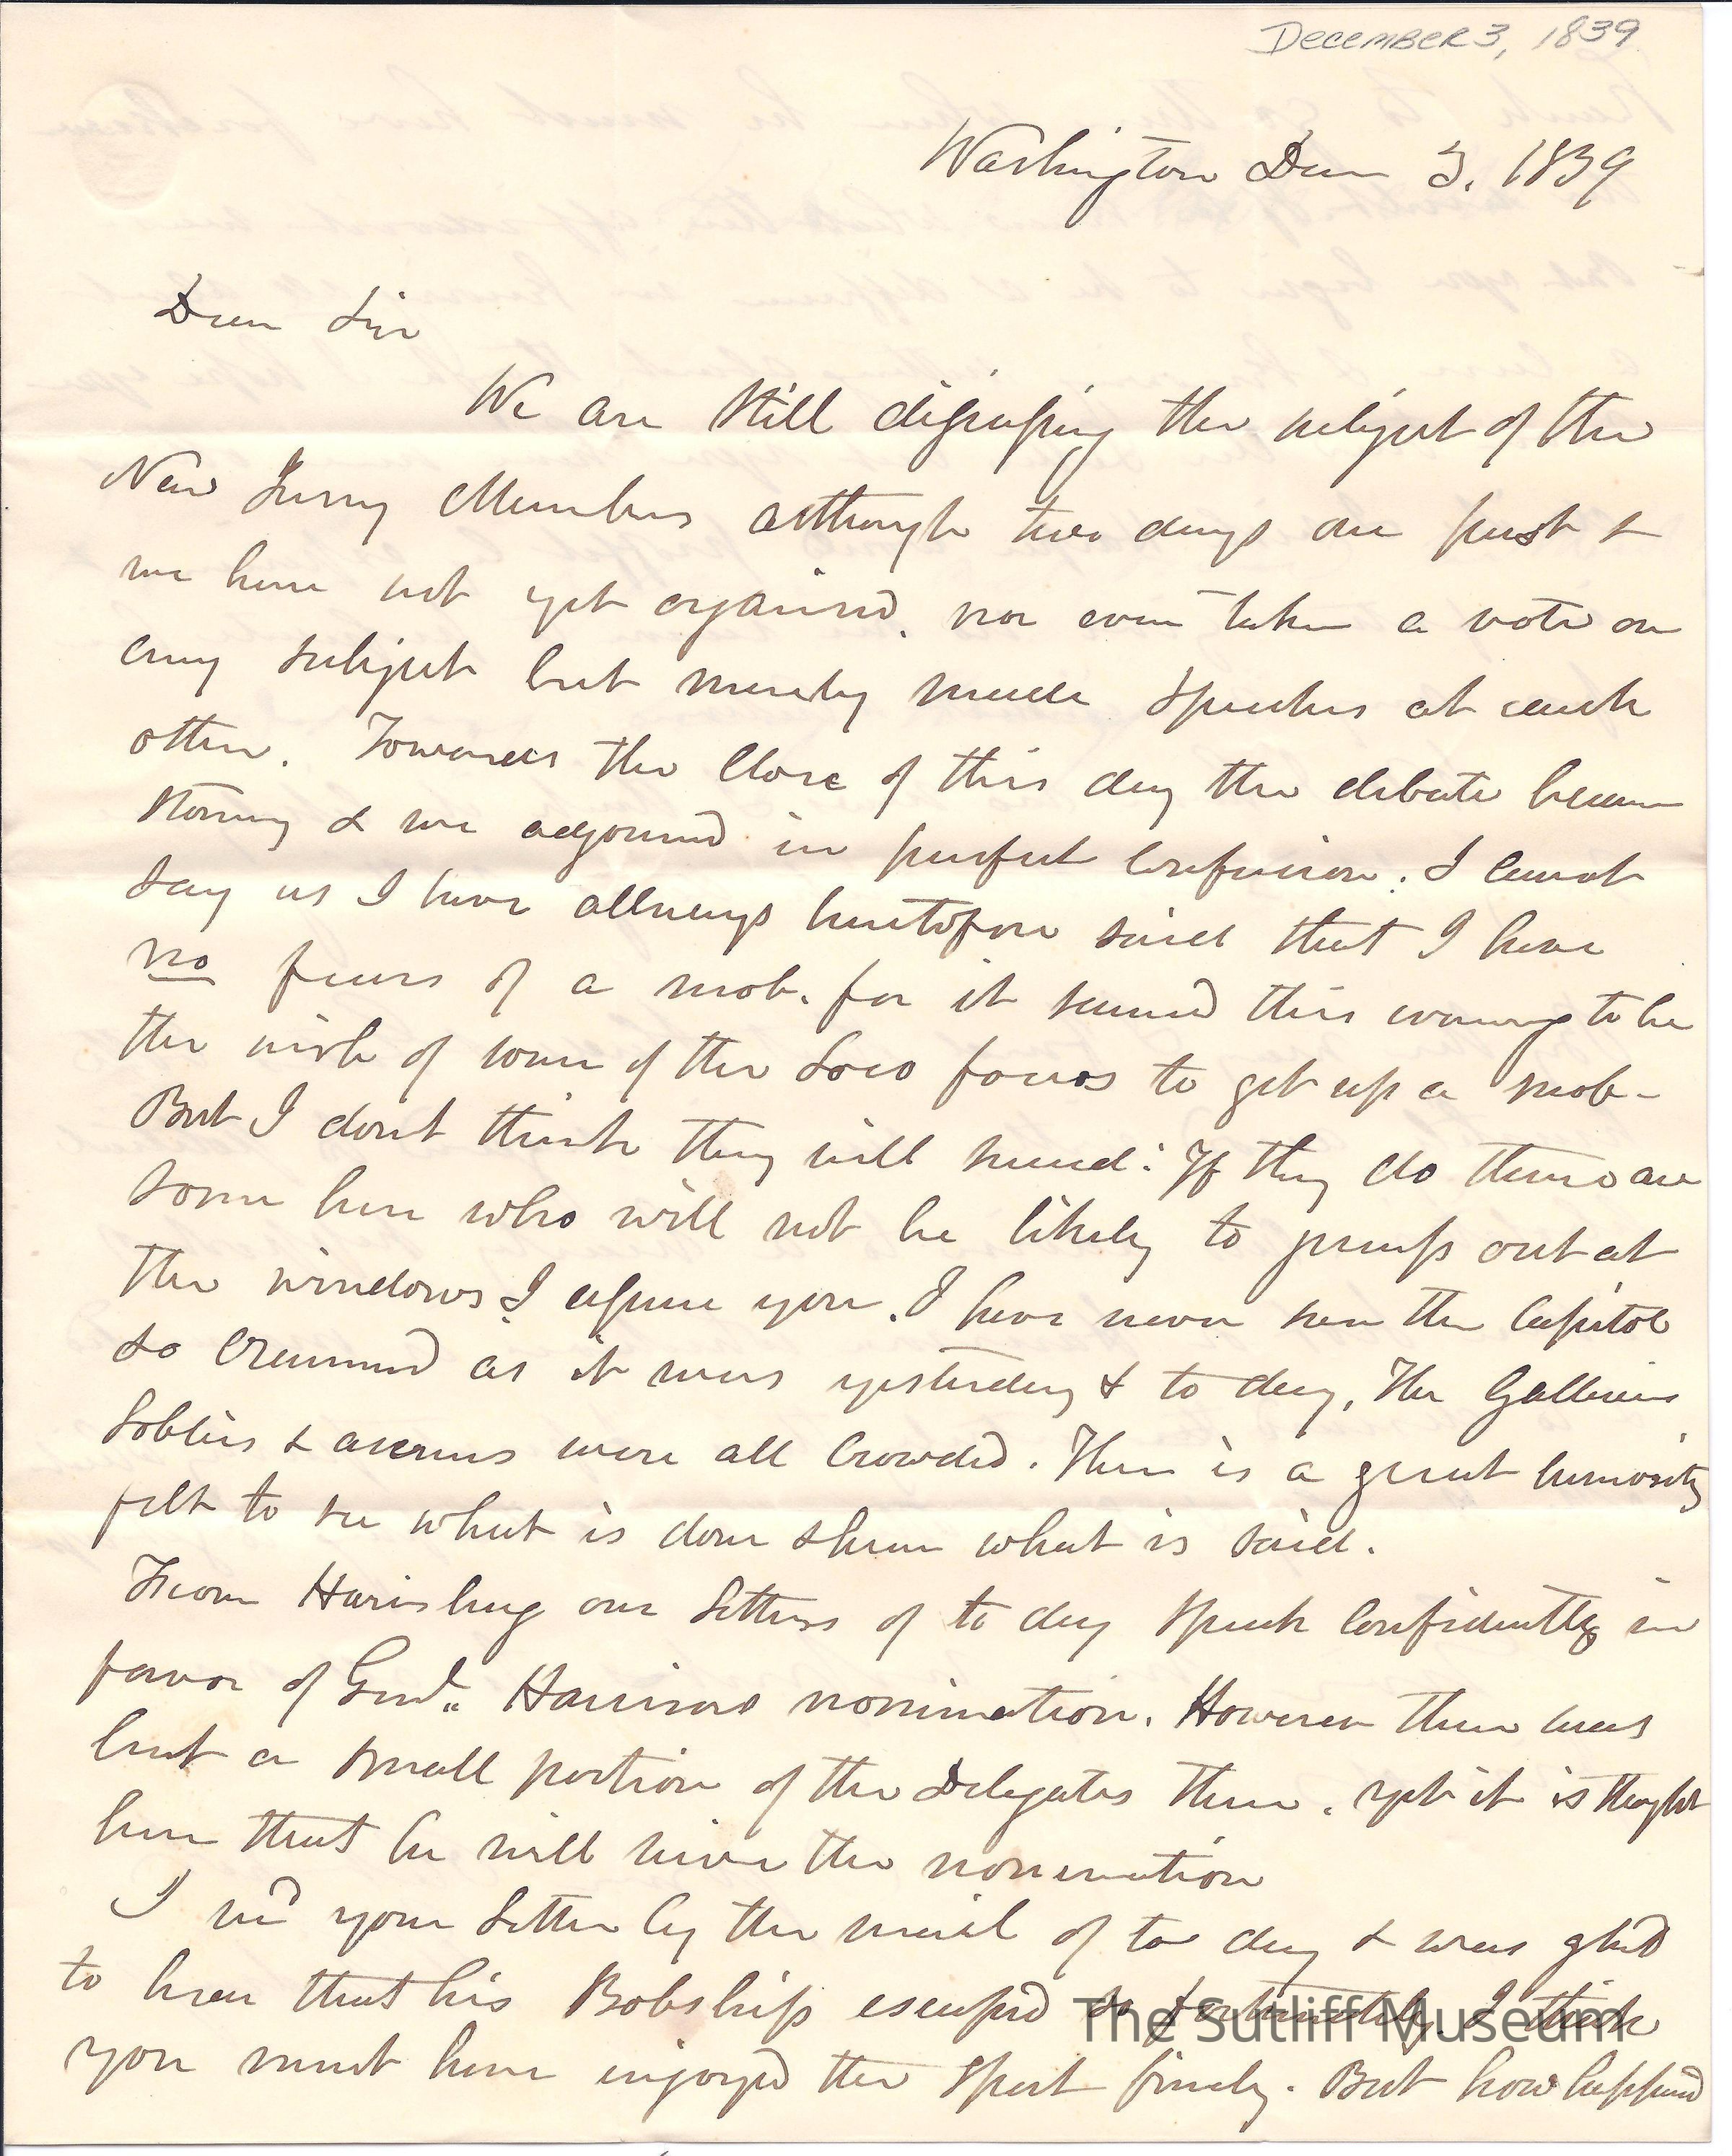 DECEMBER 3, 1839
Washington Decm 3. 1839
Dear Sir
We are still discussing the subject of the
New Jersey Members although two days are past &
we have not yet organised. nor even taken a vote on
any subject but merely made speeches at each
other. Towards the close of this day the debate became
stormy & we adjourned in perfect confusion. I cannot
say as I have allways heretofore said that I have
no fears of a mob. for it seemed this evening to be
the wish of some of the Loco focos to get up a mob-
But I dont think they will succeed: If they do there are
some here who will not be likely to jump out at
the windows I assure you. I have never seen the Capitol
so crammed as it was yesterday & to day, The Galleries
Lobbies & avenues were all crowded. There is a great curiosity
felt to see what is done & hear what is said.
From Harisburg our letters of to day speak confidently in
favor of Genl. Harrisons nomination. However there was
but a small portion of the Delegates there. yet it is thought
here that he will receive the nomination
I recd your letter by the mail of to day & was glad
to hear that his Bobship escaped so fortunately. I think
you must have enjoyed the sport finely. But how happened
The Sutliff Museum